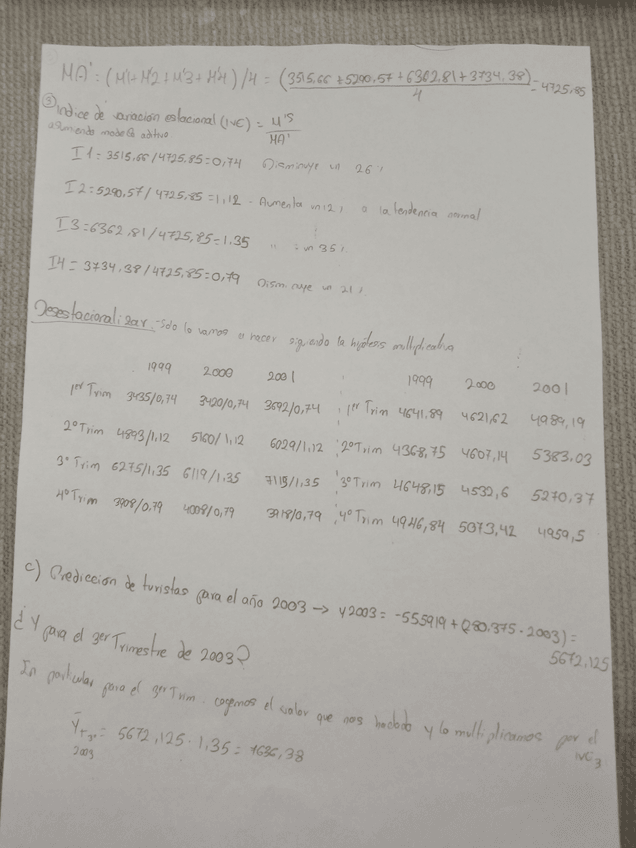 MA' = (M'1 + M'2 + M'3 + M'4) / 4 = (3515,66 + 5290,57 + 6362,81 + 3734,38) / 4 = 4725,85
③ Indice de variación estacional (IVE) = M'S / MA'
asumiendo modelo aditivo
I1 = 3515,66 / 4725,85 = 0,74 Disminuye un 26%
I2 = 5290,57 / 4725,85 = 1,12 - Aumenta un 12% a la tendencia normal
I3 = 6362,81 / 4725,85 = 1.35 " : un 35%
I4 = 3734,38 / 4725,85 = 0,79 Disminuye un 21%
Desestacionalizar - Solo lo vamos a hacer siguiendo la hipótesis multiplicativa
1999 2000 2001 1999 2000 2001
1er Trim 3435/0,74 3420/0,74 3692/0,74 1er Trim 4641,89 4621,62 4989,19
2º Trim 4893/1,12 5160/1,12 6029/1,12 2º Trim 4368,75 4607,14 5383,03
3º Trim 6275/1,35 6119/1,35 7115/1,35 3º Trim 4648,15 4532,6 5270,37
4º Trim 3908/0,79 4008/0,79 3918/0,79 4º Trim 4946,84 5073,42 4959,5
c) Predicción de turistas para el año 2003 → Y2003 = -555919 + (280.375 · 2003) =
5672,125
¿Y para el 3er Trimestre de 2003?
En particular para el 3er Trim. cogemos el valor que nos ha dado y lo multiplicamos por el
IVE3
5672,125 · 1,35 = 7636,38
2003